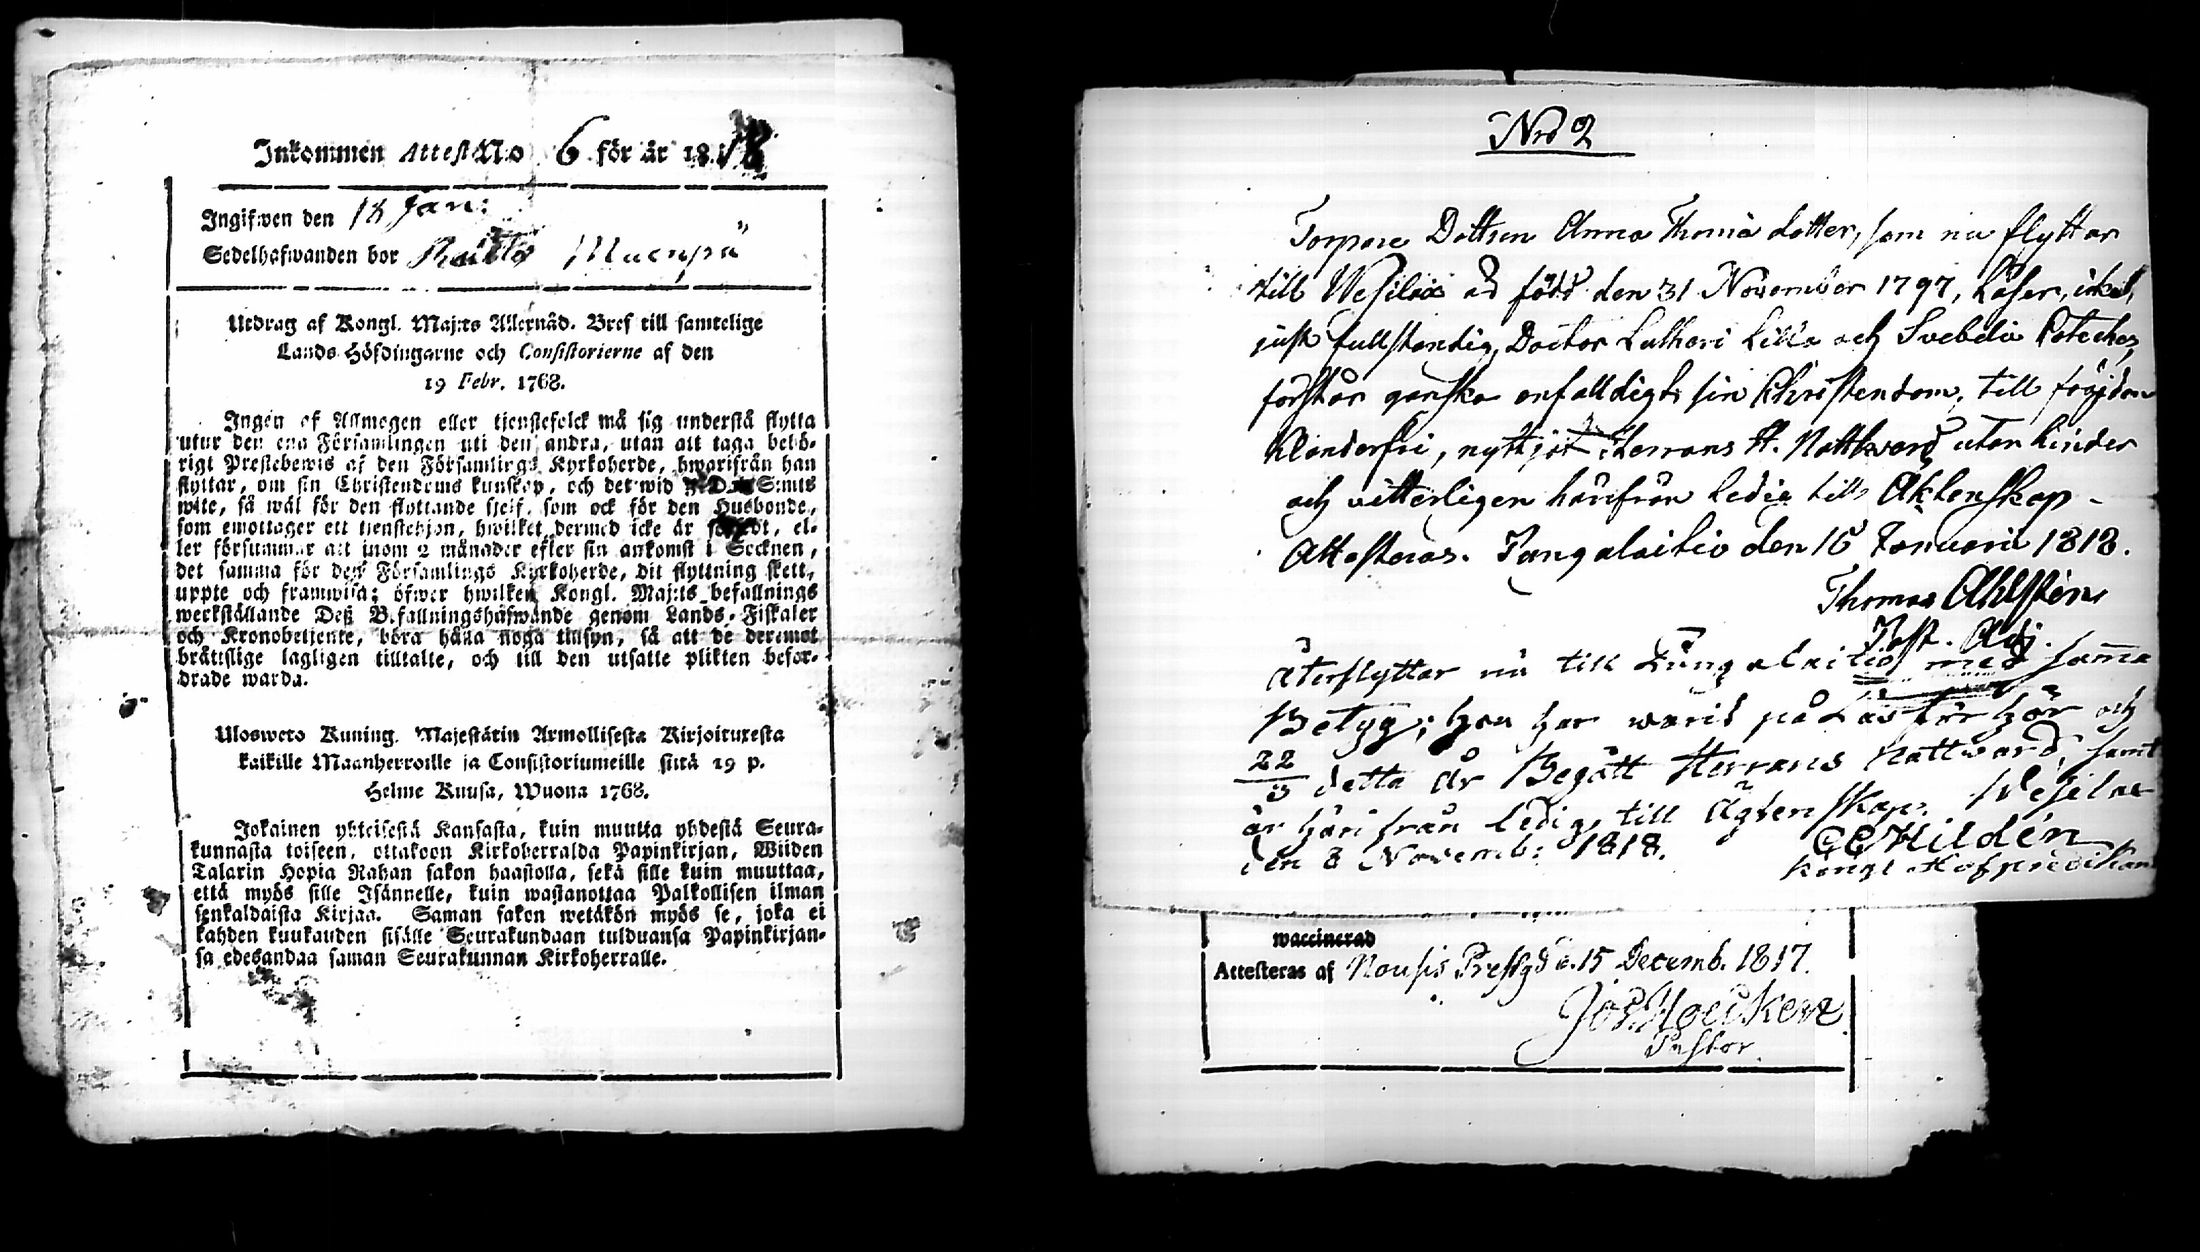 Inkommen Attest No 6 för år 1818
Ingifwen den 18 Jan:
Sedelhafwanden bor
Utdrag af Kongl. Maj:ts Allernåd. Bref till samtelige
Lands-Höfdingarne och Consistorierne af den
19 Febr. 1768.
Ingen af Allmogen eller tjenstefolck må sig understå flytta
utur den ena Församlingen uti den andra, utan att taga behö-
rigt Prestebewis af den Församlings Kyrkoherde, hwarifrån han
flyttar, om sin Christendoms kunskap, och det wid 5 Dal. S:mts
wite, så wäl för den flyttande sjelf, som ock för den Husbonde,
som emottager ett tienstehjon, hwilket dermed icke är försedt, el-
ler försummar att inom 2 månader efter sin ankomst i Socknen,
det samma för dess Församlings Kyrkoherde, dit flyttning skett,
uppte och framwisa; öfwer hwilken Kongl. Maj:ts befallnings
werkställande Deß Befallningshafwande genom Lands-Fiskaler
och Kronobetjente, böra hålla noga tillsyn, så att de deremot
bråttslige lagligen tilltalte, och till den utsatte plikten befor-
drade warda.
Ulosweto Kuning. Majestätin Armollisesta Kirjoituxesta
kaikille Maanherroille ja Consistoriumeille siitä 19 p.
Helme Kuusa, Wuona 1768.
Jokainen yhteisestä Kansasta, kuin muutta yhdestä Seura-
kunnasta toiseen, ottakoon Kirkoherralda Papinkirjan, Wiiden
Talarin Hopia Rahan sakon haastolla, sekä sille kuin muuttaa,
että myös sille Isännelle, kuin wastanottaa Palkollisen ilman
senkaldaista Kirjaa. Saman sakon wetäkön myös se, joka ei
kahden kuukauden sisälle Seurakundaan tulduansa Papinkirjan-
sa edesandaa saman Seurakunnan Kirkoherralle.
Nro 2
Torpare Dottren Anna Thomà dotter, som nu flyttar
till Wesilax är född den 31 November 1797, Läser,
just fullstendig, Doctor Lutheri Lilla och Svebelii Cateches,
förstår ganska enfalldigt sin Christendom, till frägdan
Klanderfri, nyttjat Herrans H. Nattward utan hinder
och vitterligen härifrån ledig till Äktenskap -
Attesteras. Jungalaitio den 16 Januarii 1818.
Thomas Ahlstén
Past. Adj.
Återflyttar nu till Lungalaitio med samma
Betyg; hon har warit på Läsförhör och
22/3 detta år Begått Herrans Nattward, samt
är härifrån ledig till Ägtenskap. Wesilax
den 8 Novemb: 1818. CEHildén
Kongl. Hofpredikant
waccinerad
Attesteras af Nousis Prestgd d. 15 Decemb. 1817.
Pastor.